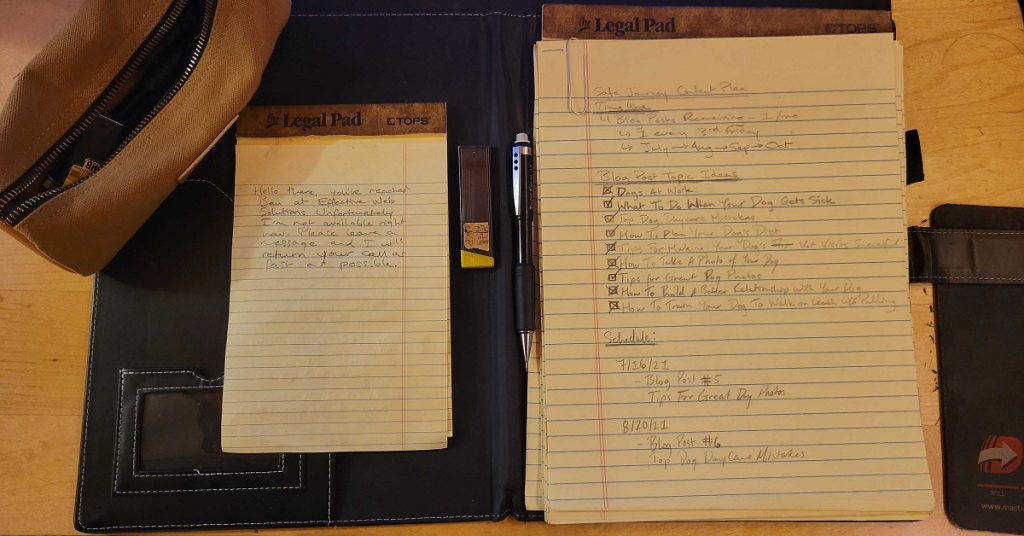 the Legal Pad TOPS
Hello there, you've reached
Ben at Effective Web
Solutions. Unfortunately
I'm not available right
now. Please leave a
message and I will
return your call as
fast as possible.
the Legal Pad TOPS
Safe Journey Content Plan
Timeline
4 Blog Posts Remaining - 1/mo
↳ 1 every 3rd Friday
↳ July → Aug → Sep → Oct
Blog Post Topic Ideas
Dogs At Work
What To Do When Your Dog Gets Sick
Top Dog Daycare Mistakes
How To Plan Your Dog's Diet
Tips For Making Your Dog's Vet Visits Successful
How To Take A Photo of Your Dog
Tips for Great Dog Photos
How To Build A Better Relationship with Your Dog
How To Train Your Dog To Walk on Leash w/o Pulling
Schedule:
7/16/21
- Blog Post #5
Tips For Great Dog Photos
8/20/21
- Blog Post #6
Top Dog DayCare Mistakes
MILL
www.mast